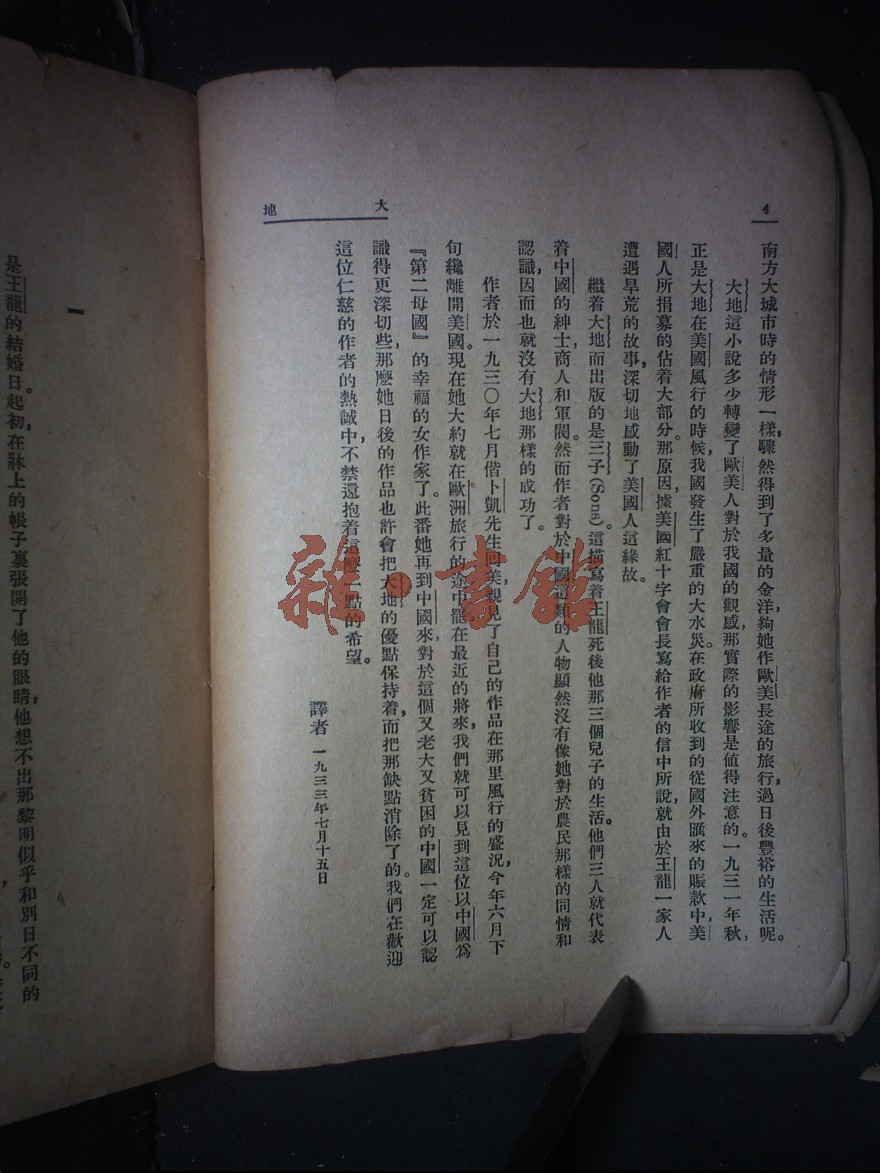 4
大地
南方大城市時的情形一樣，驟然得到了多量的金洋，夠她作歐美長途的旅行，過日後豐裕的生活呢。
大地這小說多少轉變了歐美人對於我國的觀感，那實際的影響是值得注意的。一九三一年秋，
正是大地在美國風行的時候，我國發生了嚴重的大水災。在政府所收到的從國外匯來的賑款中，美
國人所捐募的佔着大部分。那原因，據美國紅十字會會長寫給作者的信中所說，就由於王龍一家人
遭遇旱荒的故事，深切地感動了美國人這緣故。
繼着大地而出版的是三子(Sons)。這描寫着王龍死後他那三個兒子的生活。他們三人就代表
着中國的紳士，商人和軍閥。然而作者對於中國這類的人物顯然沒有像她對於農民那樣的同情和
認識，因而也就沒有大地那樣的成功了。
作者於一九三〇年七月偕卜凱先生回美，親見了自己的作品在那里風行的盛況，今年六月下
句纔離開美國。現在她大約就在歐洲旅行的途中罷。在最近的將來，我們就可以見到這位以中國爲
『第二母國』的幸福的女作家了。此番她再到中國來，對於這個又老大又貧困的中國一定可以認
識得更深切些，那麼她日後的作品也許會把大地的優點保持着，而把那缺點消除了的。我們在歡迎
這位仁慈的作者的熱誠中，不禁還抱着這麼一點的希望。
譯者 一九三三年七月十五日
一
是王龍的結婚日。起初，在牀上的帳子裏張開了他的眼睛，他想不出那黎明似乎和別日不同的
雜·書館